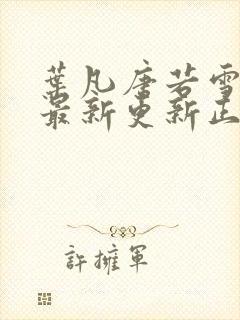 葉凡唐若雪
最新更新正
許擁軍